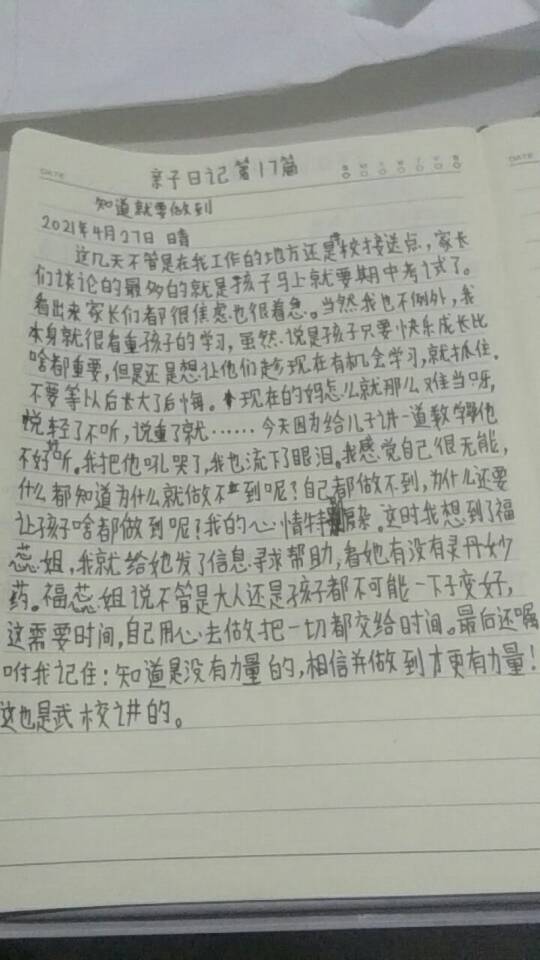 DATE
亲子日记第17篇
知道就要做到
2021年4月27日 晴
这几天不管是在我工作的地方还是校接送点，家长
们谈论的最多的就是孩子马上就要期中考试了。
看出来家长们都很焦虑也很着急。当然我也不例外，我
本身就很看重孩子的学习，虽然说是孩子只要快乐成长比
啥都重要，但是还是想让他们趁现在有机会学习，就抓住。
不要等以后长大了后悔。现在的妈怎么就那么难当呀，
说轻了不听，说重了就……今天因为给儿子讲一道数学他
不好好听。我把他吼哭了，我也流下了眼泪。我感觉自己很无能，
什么都知道为什么就做不到呢？自己都做不到，为什么还要
让孩子啥都做到呢？我的心情特别复杂。这时我想到了福
蕊姐，我就给她发了信息寻求帮助，看她有没有灵丹妙
药。福蕊姐说不管是大人还是孩子都不可能一下子变好，
这需要时间，自己用心去做把一切都交给时间。最后还嘱
咐我记住：知道是没有力量的，相信并做到才更有力量！
这也是武校讲的。
DATE